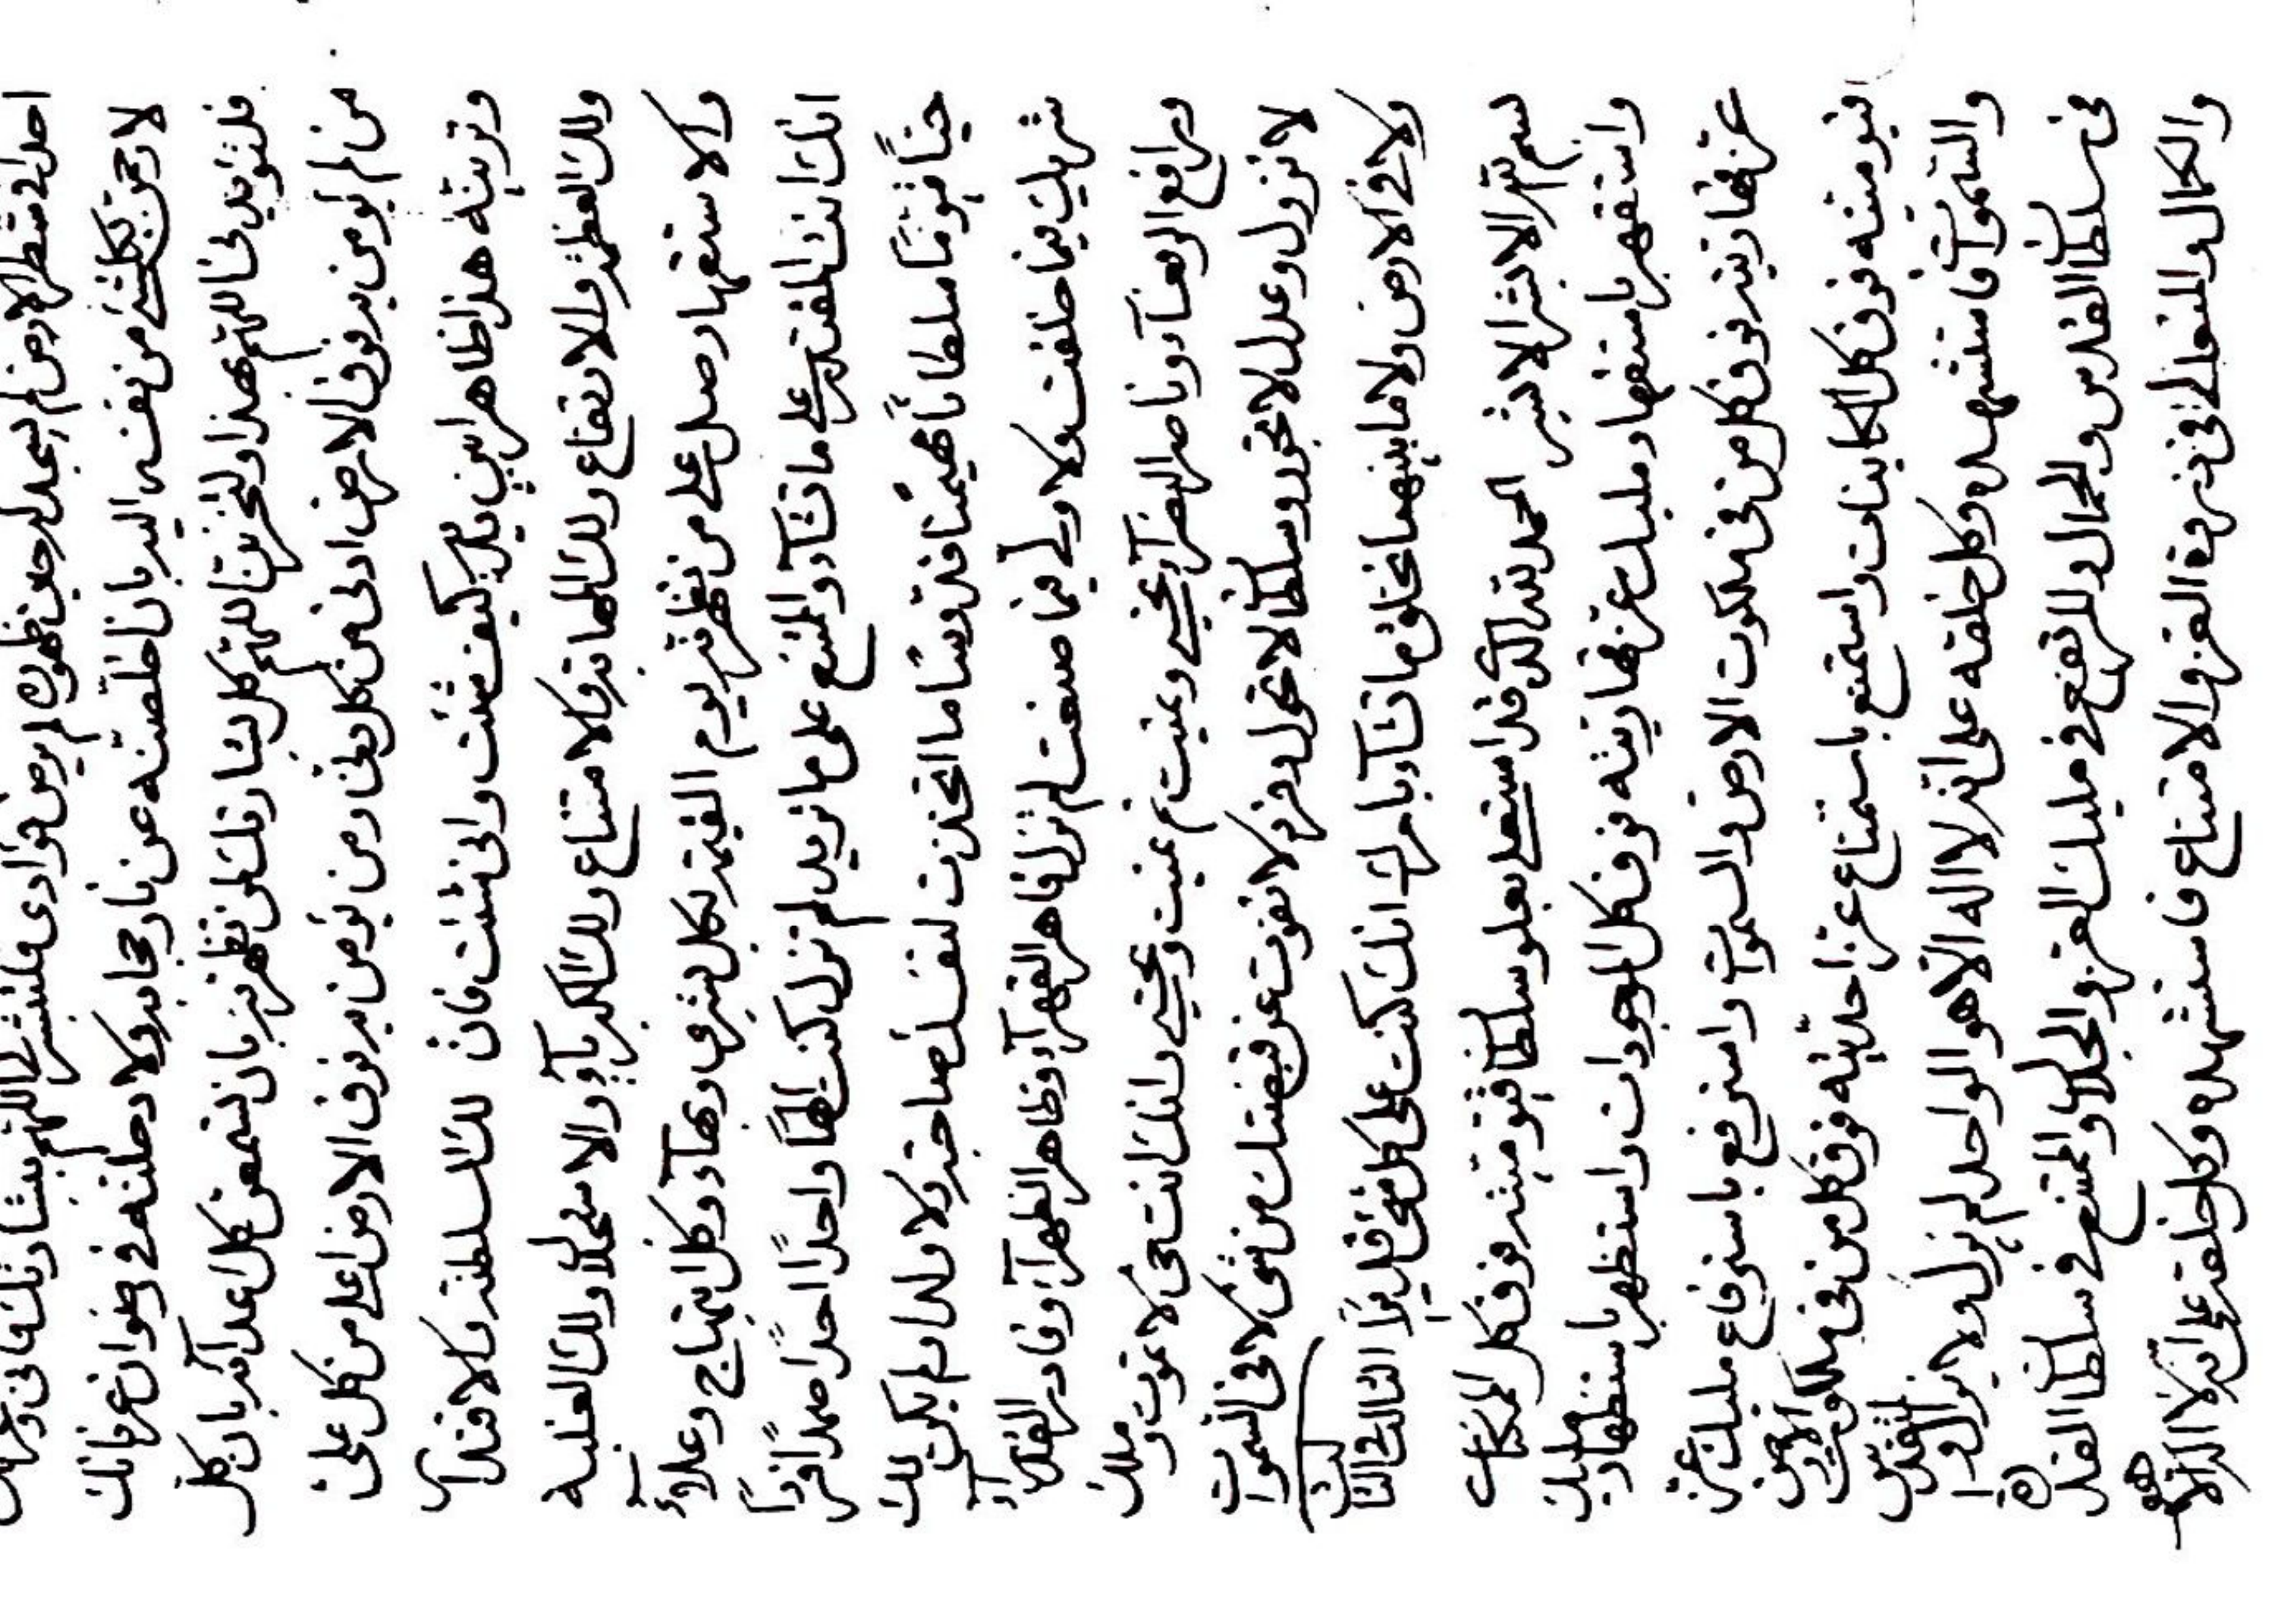 احدا في شطر الارض لم يسجد لك حين ظهوره لم يرض فؤادى فلتنشرن اللهم بشارتك فانى
لارحمن بكلشئ من نفسه اليه بان خلصته عن نار حجابه ولا دخلته في رضوان عرفانك
اللهم بهذا ولتخبرننا اللهم كل بشارتك لمن تظهرنه بان تسمعن كل بان كل
من لم يومن به فوق الارض ادنى من كل دنى ومن يؤمن به فوق الارض اعلى من كل على
وتربيته هذا ظاهر ابين يديك كيف شئت وانى شئت فان لك السلطنة والاقتدآر
ولك العظمة والارتفاع ولك البهاء والامتناع ولك الكبريآء والاستجلال ولك الغلبه
والاستقهار وصل على من تظهرنه يوم القيمة بكل شرف وبهآء وكل ابتهاج وعلآء
انك انت المقتدر على ما تشآء والممتنع على ما تريد لم تزل كنت الهاً واحدًا احدًا صمدًا فردًا
حيًا قيومًا سلطانًا مهيمنًا قدوسًا ما اتخذت لنفسك صاحبة ولا ولدا ولم يكن لك
شريك فيما خلقت ولا ولى فيما صنعت لم تزل قاهر القهرآء وظاهر الظهرآء وقادر القدرآء
ورافع الرفعآء وناصر النصرآء تحيى وتميت ثم تميت وتحيى وانك انت حى لا تموت وملك
لا تزول وعدل لا تجور وسلطان لا تحول وفرد لا يفوت عن قبضتك من شئ لا في السموات
ولا في الارض ولا ما بينهما تخلق ما تشآء بامرك انك كنت على كل شئ قديرًا الثالث في الثالث
بسم الله الابشر الابشر الحمد لله الذى قد استعلى بعلو سلطان قيوميته فوق كل الممكنات
واستقهر باستقهار مليك عز قهاريته فوق كل الموجودات واستظهر باستظهار مليك
عز قهاريته فوق كل من في ملكوت الارض والسموات واسترفع باسترفاع مليك عز
قيوميته فوق كل الكاينات واستمنع باستمناع عز احديته فوق كل من في ملكوت الارض
والسموات فاستشهده وكل خلقه على انه لا اله الا هو الواحد لم يزل ولا يزال المتقدس
في سلطان القدس والجمال والمرتفع في مليك العز والجلال والممتنع في سلطان القدرة
والكمال والمتعالى في ذروة العز والامتناع فاستشهده وكل خلقه على انه لا اله الا هو